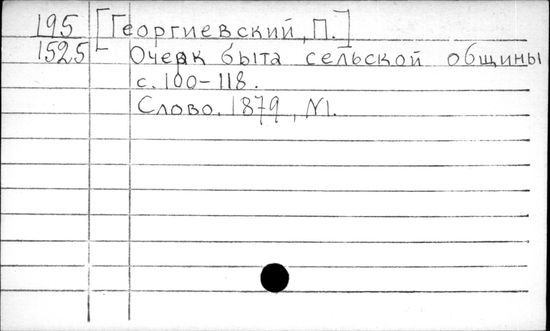 195 [Георгиевский, П.]
1525 Очерк быта сельской общины
с. 100-118.
Слово. 1879, N1.